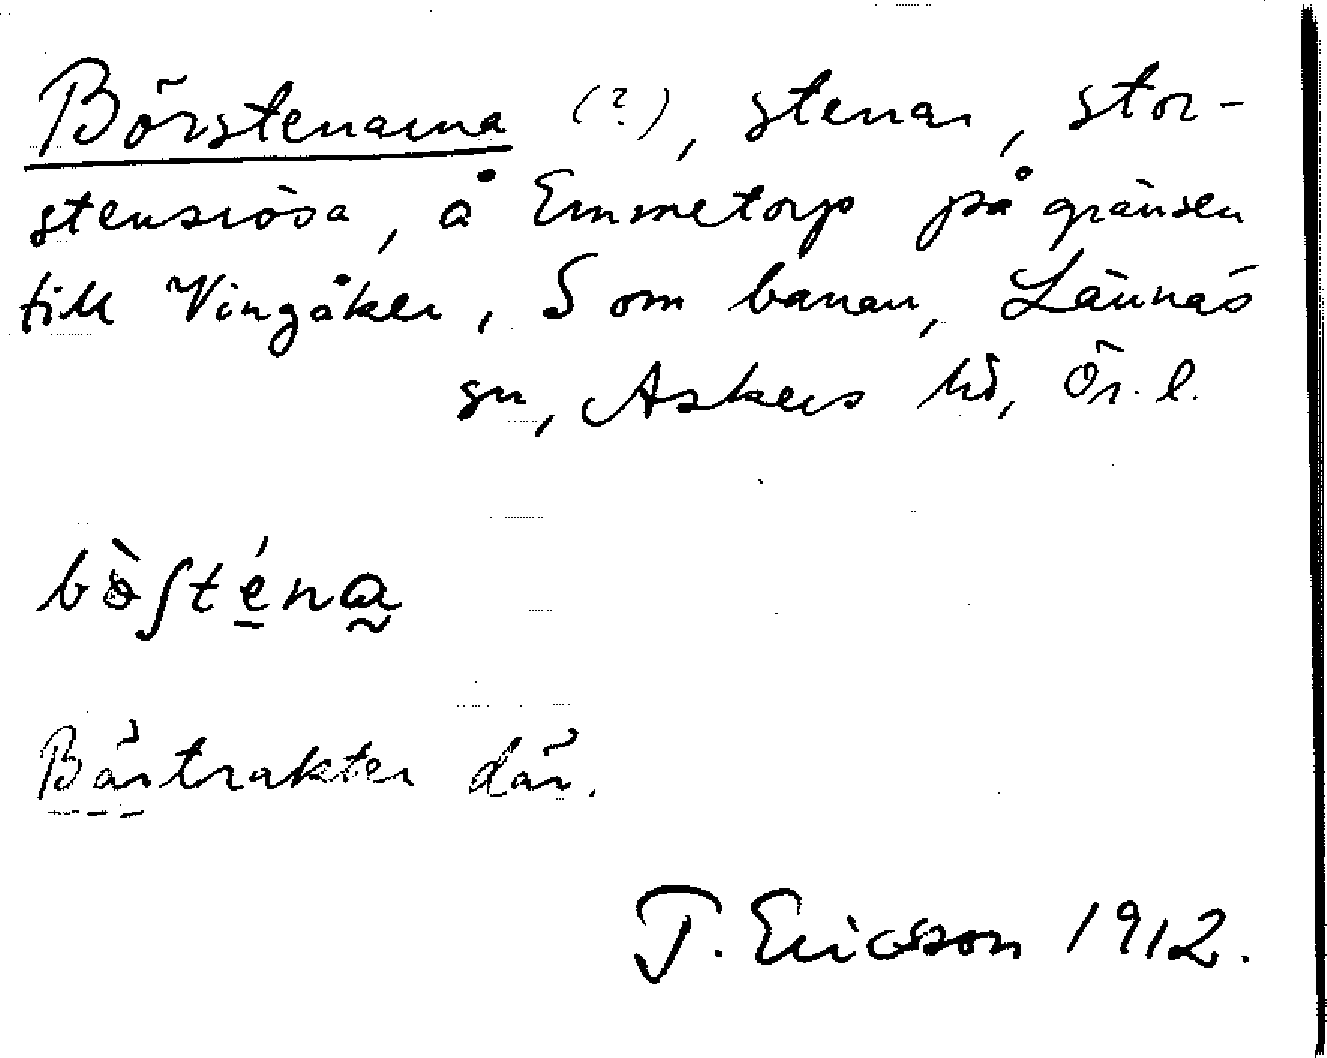 Börstenarna (?), stenar, stor-
stensrösa, å Emmetorp på gränsen
till Vingåker, S om banan, Lännäs
sn, Askers hd, Ör. l.
bə̀ʃténa̰
Bärtrakter där.
T. Ericsson 1912.